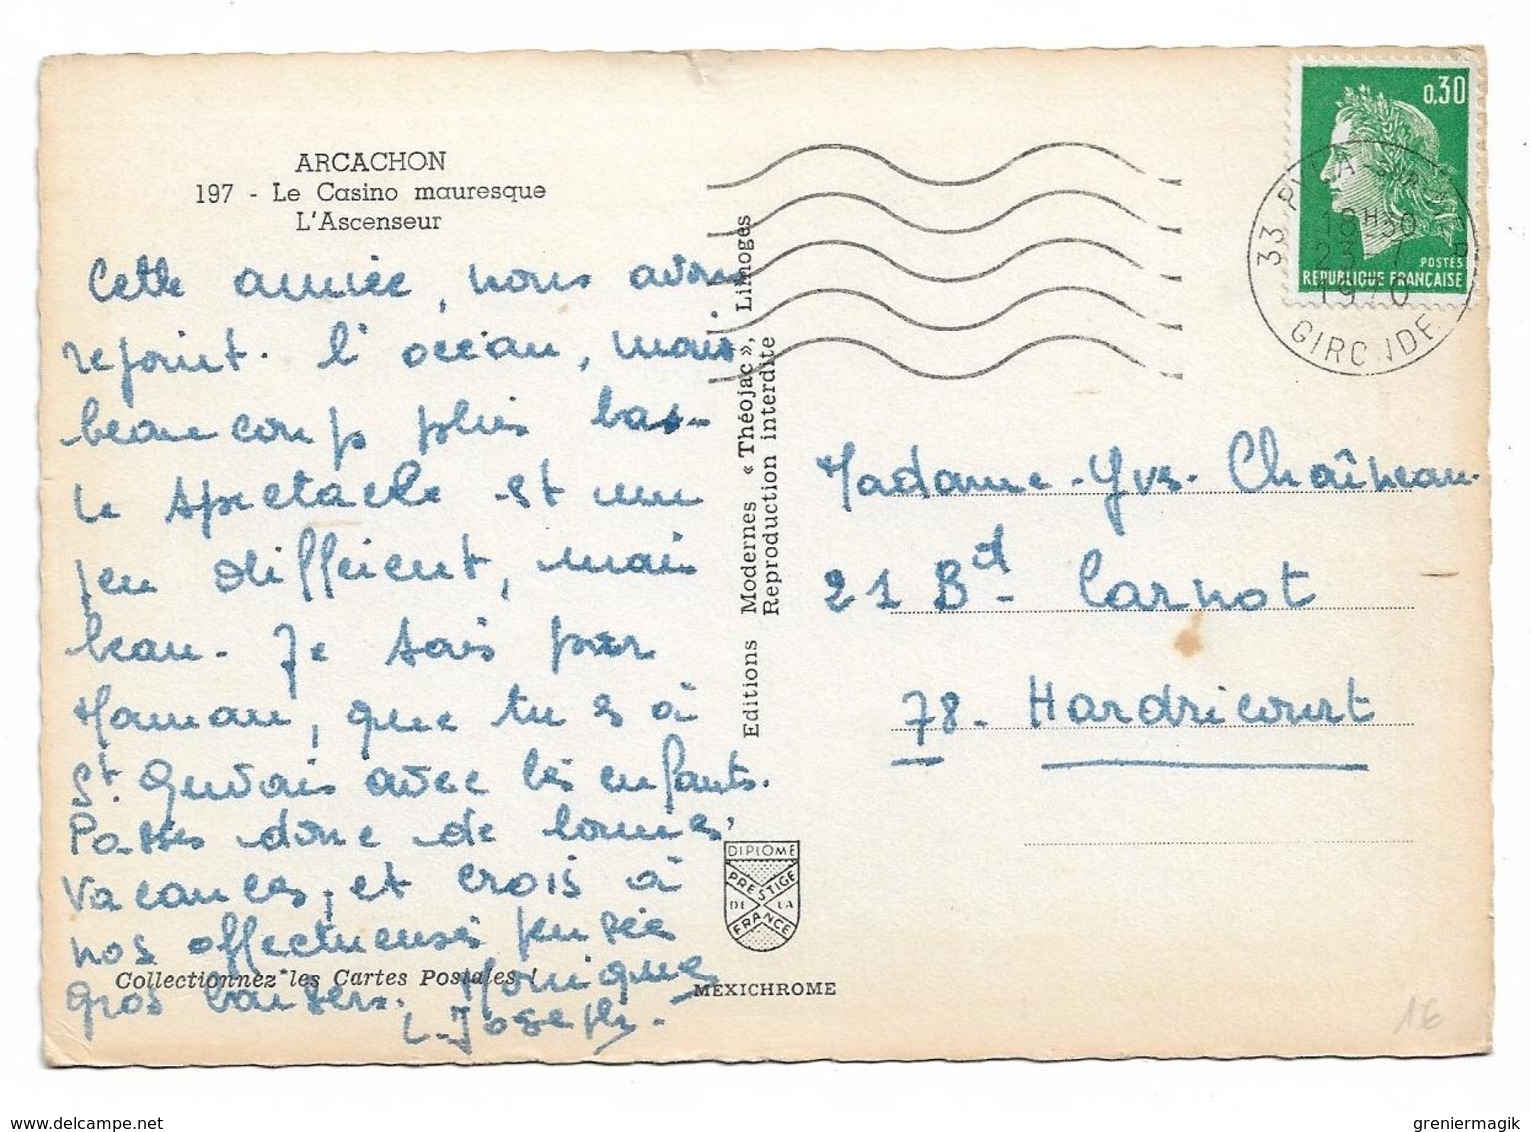 ARCACHON
197 - Le Casino mauresque
L'Ascenseur
Cette année, nous avons
rejoint l'océan, mais
beaucoup plus bas-
le spectacle est un
peu différent, mais
beau. Je sais par
Maman, que tu es à
St. Gervais avec les enfants.
Passes donc de bonnes
vacances, et crois à
nos affectueuses pensées
Gros baisers. Monique
et Joseph.
Collectionnez les Cartes Postales !
Editions Modernes « Théojac », Limoges
Reproduction interdite
DIPLOME
PRESTIGE
DE LA
FRANCE
MEXICHROME
0,30
POSTES
REPUBLIQUE FRANÇAISE
33 PYLA
18H30
23 7
1970
GIRONDE
Madame Yves
21 Bd Carnot
78 - Hardricourt
1€
delcampe.net
greniermagik